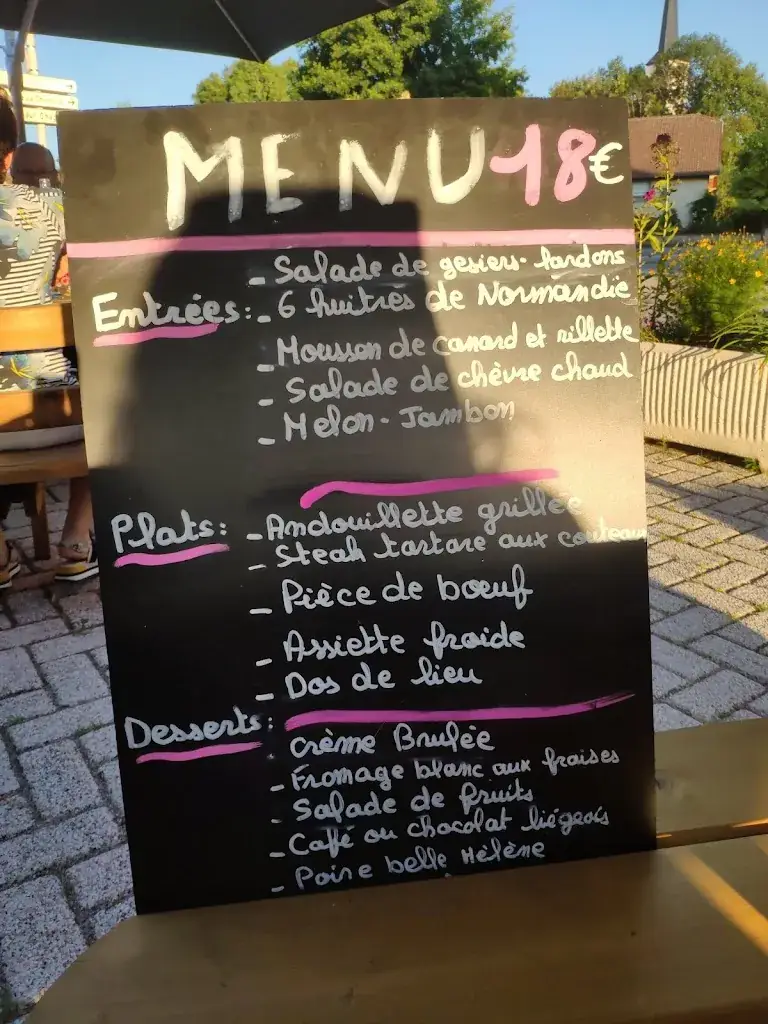 MENU 18€
- Salade de gesiers - lardons
Entrées: - 6 huitres de Normandie
- Mousson de canard et rillette
- Salade de chèvre chaud
- Melon - Jambon
Plats: - Andouillette grillée
- Steak tartare aux couteau
- Pièce de bœuf
- Assiette froide
- Dos de lieu
Desserts:
crème Brulée
- Fromage blanc aux fraises
- Salade de fruits
- Café ou chocolat liégeois
- Poire belle Hélène